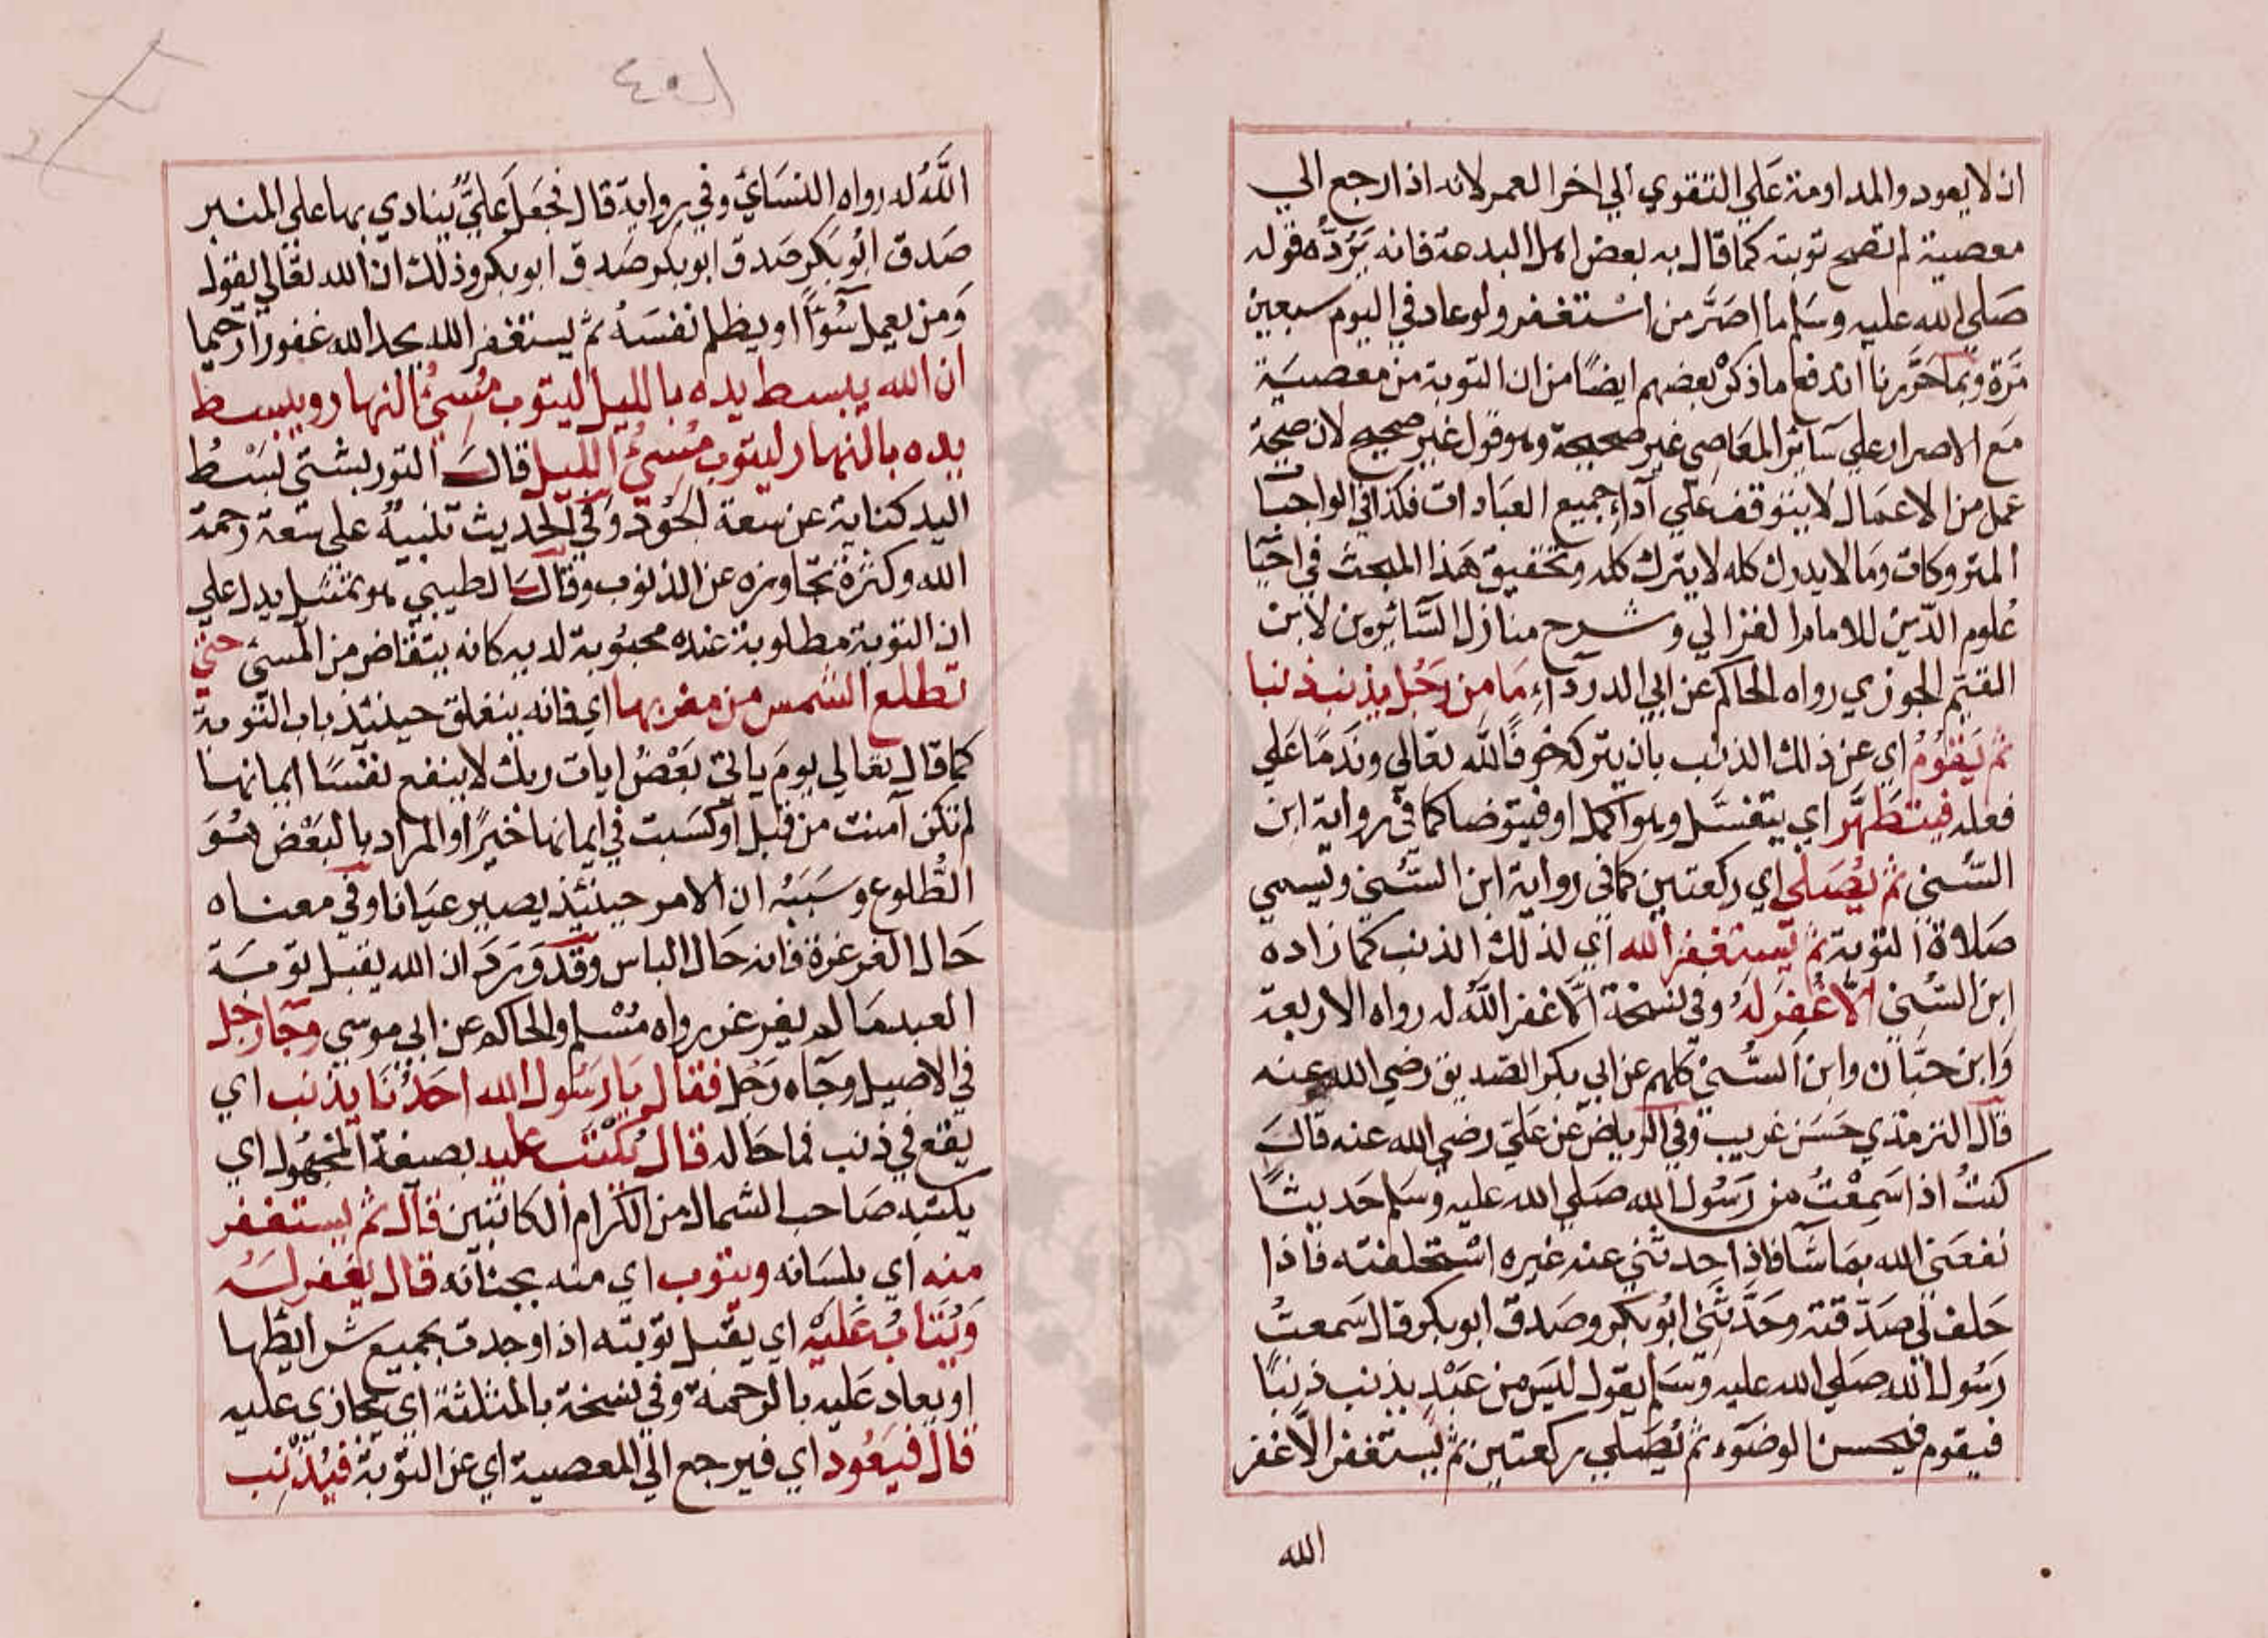 ان لا يعود والمداومة عَلي التقوي الي اخر العمر لانه اذا رجع الي
معصية لم تصح توبته كما قال به بعض اهل البدعة فانه يَرُدُّه قوله
صَلي الله عليه وسَلم ما اصَرَّ من اسْتغفر ولو عاد في اليوم سبعين
مَرّة وبما حَرّرنا اندفع ما ذكرْ بعضهم ايضًا من ان التوبة من معصيَة
مَع الاصرار علي سَائر المعَاصِي غير صحيحة وهو قول غير صحيح لان صحة
عمل من الاعمَال لا يتوقف عَلي آداء جميع العبَادات فكذا في الواجبات
المتروكات ومَا لا يدرك كله لا يترك كله وتحقيق هَذا المبحث في احيَا
عُلوم الدّين للامام الغزالي وشرح منازل السَّائرين لابن
القيّم الجوزي رواه الحاكم عن ابي الدرداءِ مَا من رَجُل يذنب ذنبا
ثم يَقُومُ اي عن ذلك الذنب بان يتركه خوفًا لله تعَالي وندمًا عَلي
فعله فيتطَهَّر اي يغتسَل وهو اكمل او فيتوضا كما في رواية ابن
السُّني ثم يُصَلي اي ركعتين كما في رواية ابن السُّني وتسمي
صَلاة التوبة ثم يَستغفر الله اي لذلك الذنب كما زاده
ابن السُّني الاّ غُفِرَ لهُ وفي نسْخَة الاّ غفر اللّه له رواه الاربعة
وَابن حبَّان وابن السُّني كلهم عن ابي بكر الصّديق رضي الله عنه
قال الترمذي حَسَن غريب وفي الرياض عن عَليّ رضي الله عنه قالَ
كنتُ اذا سَمِعْتُ من رَسُول الله صَلي الله عليه وسَلم حَديثًا
نفعَني الله بمَا شَآ فاذا حدثني عنه غيره اسْتحلفته فاذا
حَلف لي صَدّقته وحَدَّثَني ابُو بَكر وصَدق ابو بكر قال سَمعتُ
رَسُول الله صَلي الله عليه وَسَلم يقول ليسَ من عَبْدٍ يذنب ذنبًا
فيقوم فيحسن الوضوَء ثم يُصَلي ركعتين ثم يَستغفر الاّ غفر
الله
اللَّهُ له رواه النسَائي وفي رواية قال فجعَل عَليٌّ ينادي بها علي المنبر
صَدق ابُو بَكر صَدق ابو بكر صَدق ابو بكر وذلك ان الله تعَالي يقول
وَمَن يعمل سُوءًا او يظلم نفسَهُ ثم يستغفر الله يجد الله غفورًا رحيما
ان الله يبسط يده بالليل ليتوب مُسِيْءُ النهار ويبسط
يده بالنهار ليتوب مُسِيْءُ الليل قالَ التوربشتي بَسْطُ
اليد كناية عن سعة الجُود وَفي الحديث تنبيهٌ علي سَعة رحمة
الله وكثرة تجَاوزه عن الذنوب وقال الطيبي هو تمثيل يدل علي
ان التوبة مطلوبة عنده محبُوبة لديه كانه يتقاض من المسئ حتي
تطلع الشمس من مغربها اي فانه ينغلق حينئذ باب التوبة
كما قال تعَالي يومَ ياتي بَعْضُ ايات ربك لا ينفع نفسًا ايمانها
لم تكن آمنت من قبل اَو كسَبت في ايمانها خيْرًا والمراد بالبَعْض هُوَ
الطُّلوع وسَبَبُه ان الامر حينئذ يصير عيَانا وفي معناه
حَال الغرغرة فانه حَال الباس وقد وَرَدَ ان الله يقبل توبَة
العبد مَا لم يغرغر رواه مُسْلم والحاكم عن ابي موسي وجَآ رَجل
في الاصيل وجَآه رَجُل فقال يَا رسُول الله احَدُنَا يذنب اي
يقع في ذنب فما حَاله قال يُكْتَب عليه بصيغة المجهُول اي
يكتبه صَاحب الشمال من الكرام الكاتبين قال ثم يستغفر
منه اي بلسَانه ويتوب اي منه بجنآنه قال يُغفر لَهُ
وَيُتَابُ عَليْه اي يقبل توبته اذا وجدت بجميع شرايطها
او يعاد عَليه بالرحمة وفي نسْخة بالمثلثة اي يجَازي عليه
قال فيَعُود اي فيرجع الي المعصية اي عن التّوبة فيُذنِب